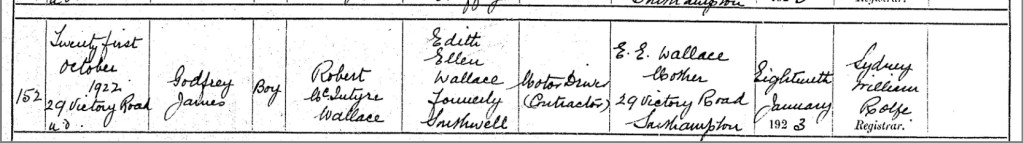 Southampton
192
Registrar.
152
Twenty first
October
1922
29 Victory Road
u.d.
Godfrey
James
Boy
Robert
McIntyre
Wallace
Edith
Ellen
Wallace
Formerly
Southwell
Motor Driver
(Contractor)
E. E. Wallace
Mother
29 Victory Road
Southampton
Eighteenth
January
1923
Sydney
William
Rolfe
Registrar.